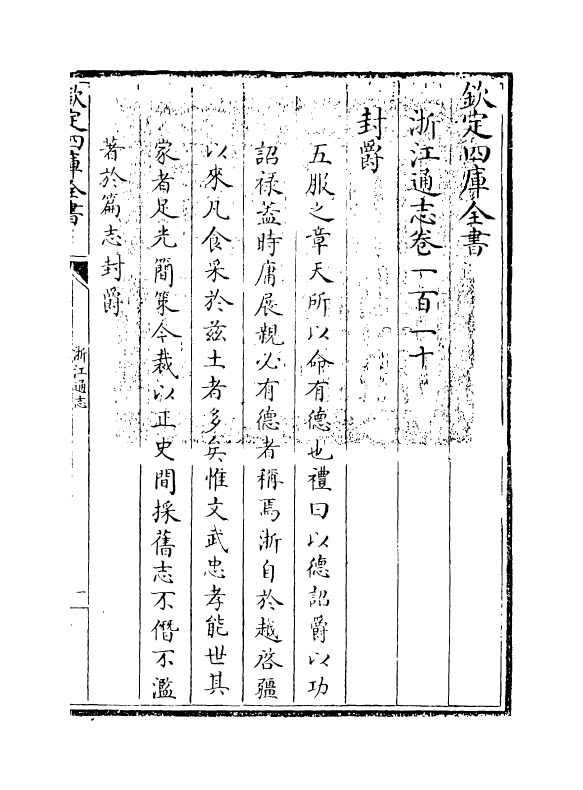 欽定四庫全書
浙江通志卷一百一十
封爵
五服之章天所以命有德也禮曰以德詔爵以功
詔禄葢時庸展親必有德者稱焉浙自於越啓疆
以來凡食采於兹土者多矣惟文武忠孝能世其
家者足光簡策今裁以正史間採舊志不僭不濫
著於篇志封爵
欽定四庫全書
浙江通志
一